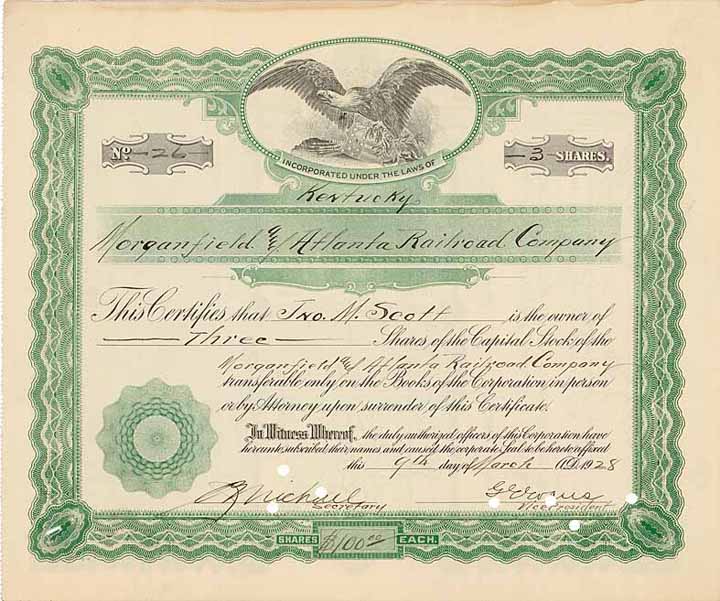 INCORPORATED UNDER THE LAWS OF
No -26- -3- SHARES.
Kentucky
Morganfield & Atlanta Railroad Company
This Certifies that Jno. M. Scott is the owner of
Three Shares of the Capital Stock of the
Morganfield & Atlanta Railroad Company
transferable only on the Books of the Corporation in person
or by Attorney upon surrender of this Certificate.
In Witness Whereof, the duly authorized officers of this Corporation have
hereunto subscribed their names and caused the corporate Seal to be hereto affixed
this 9th day of March A.D. 1928
Secretary Vice President
SHARES $100.00 EACH.